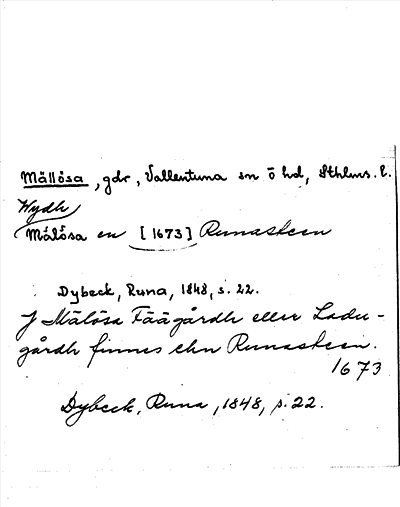 Mällösa, gdr, Vallentuna sn o hd, Sthlms. l.
Wydh
Målösa en [1673] Runasteen
Dybeck, Runa, 1848, s. 22.
J Målösa Fäägårdh eller Ladu-
gårdh finnes ehn Runasteen.
1673
Dybeck, Runa, 1848, s. 22.